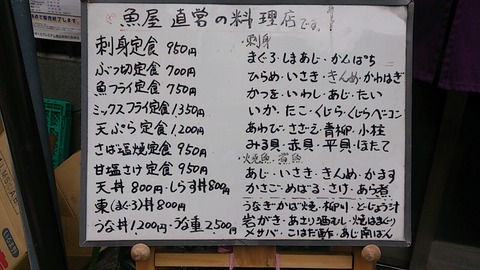 魚屋 直営の料理店です。
刺身定食 950円
ぶつ切定食 700円
魚フライ定食 750円
ミックスフライ定食 1,350円
天ぷら定食 1,200円
さば塩焼定食 950円
甘塩さけ定食 950円
天丼 800円・しらす丼 800円
東(まぐろ)丼 800円
うな丼 1,200円・うな重 2,500円
・刺身
まぐろ・しまあじ・かんぱち
ひらめ・いさき・きんめ・かわはぎ
かつを・いわし・あじ・たい
いか・たこ・くじら・くじらベーコン
あわび・さざえ・青柳・小柱
みる貝・赤貝・平貝・ほたて
・焼魚・煮魚
あじ・いさき・きんめ・かます
かさご・めばる・さけ・あら煮
うなぎ・かば焼・柳川・どじょう汁
岩がき・あさり酒むし・焼はまぐり
メサバ・こはだ酢・あじ南ばん